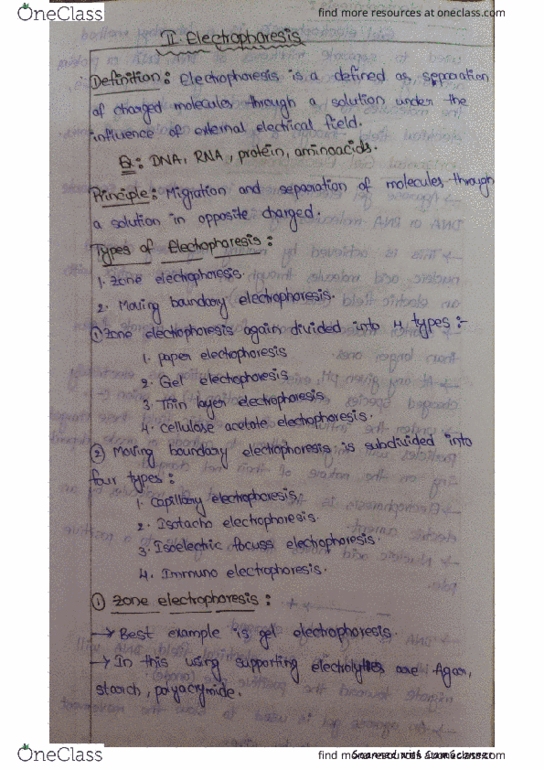 OneClass
find more resources at oneclass.com
II. Electrophoresis
Definition: Electrophoresis is a defined as, separation
of charged molecules through a solution under the
influence of external electrical field.
Ex: DNA, RNA, protein, aminoacids.
Principle: Migration and separation of molecules through
a solution in opposite charged.
Types of Electrophoresis:
1. Zone electrophoresis.
2. Moving boundary electrophoresis.
① Zone electrophoresis again divided into 4 types:-
1. paper electrophoresis
2. Gel electrophoresis
3. Thin layer electrophoresis
4. cellulose acetate electrophoresis.
② Moving boundary electrophoresis is subdivided into
four types:
1. Capillary electrophoresis.
2. Isotacho electrophoresis.
3. Isoelectric focuss electrophoresis.
4. Immuno electrophoresis.
① Zone electrophoresis:
→ Best example is gel electrophoresis.
→ In this using supporting electrolytes are Agar,
starch, polyacrymide.
OneClass
find more resources at oneclass.com
Scanned with CamScanner